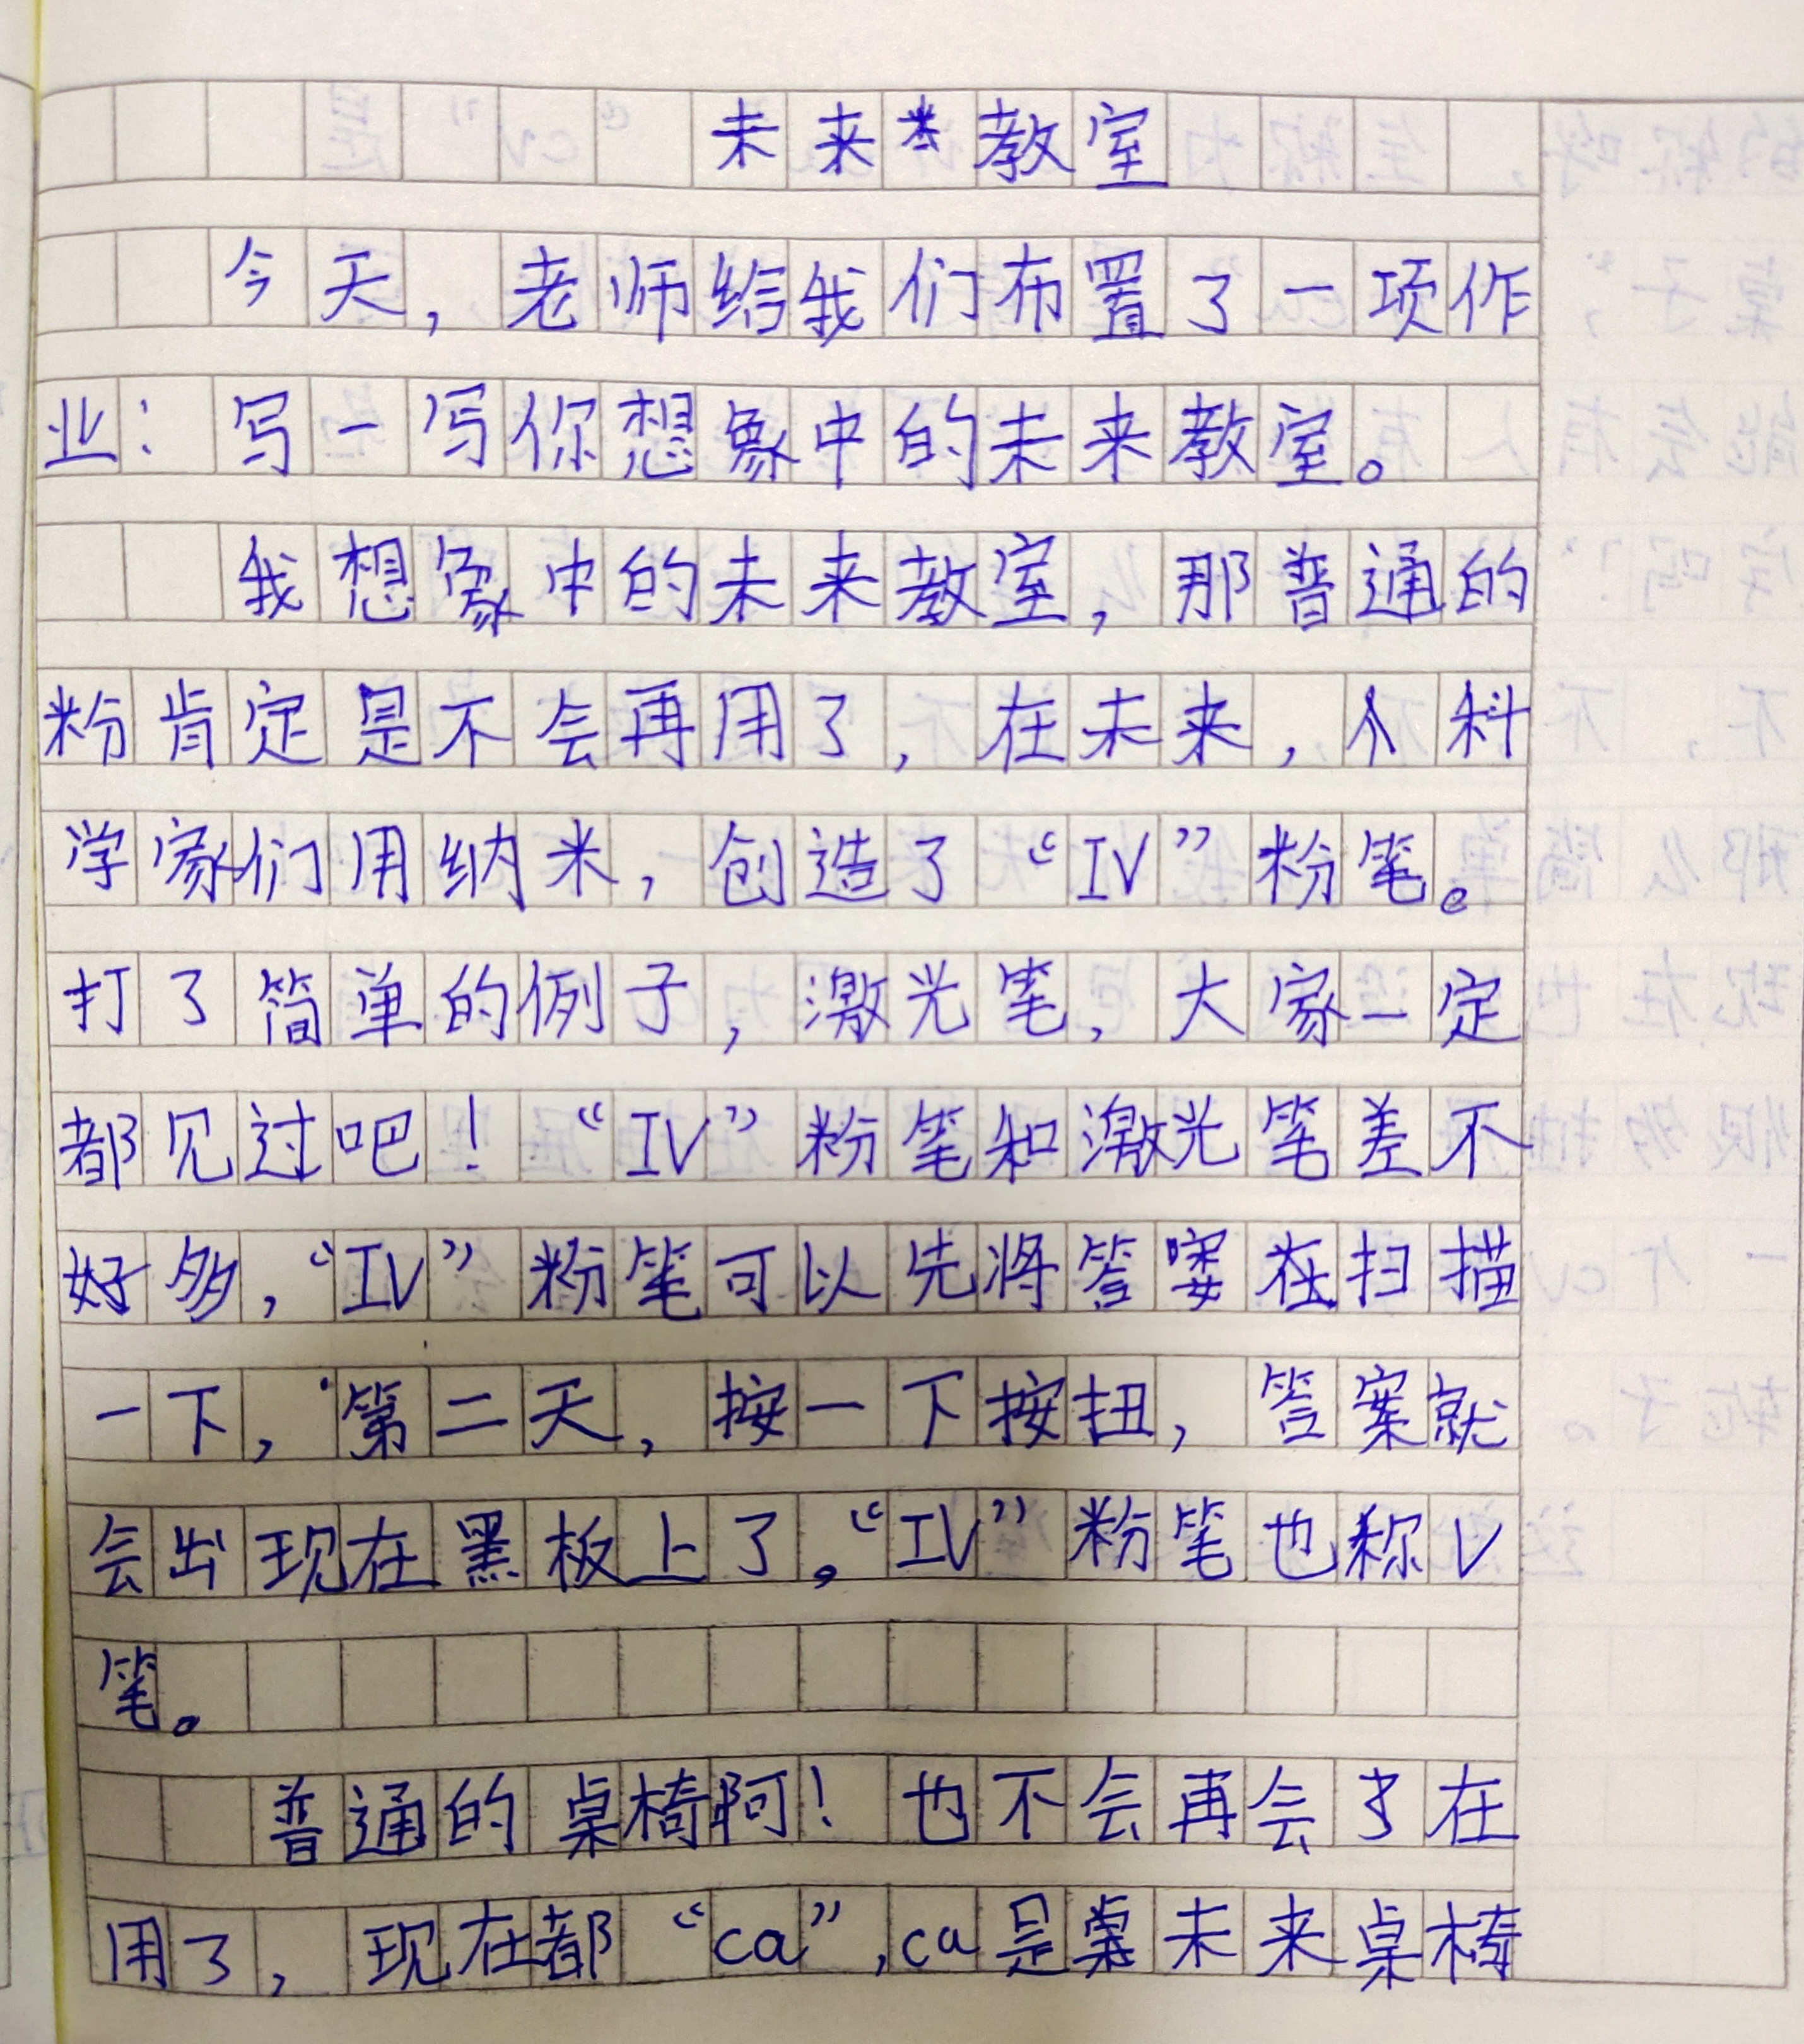 未来教室
今天，老师给我们布置了一项作
业：写一写你想象中的未来教室。
我想象中的未来教室，那普通的
粉肯定是不会再用了，在未来，科
学家们用纳米，创造了“IV”粉笔。
打了简单的例子，激光笔，大家一定
都见过吧！“IV”粉笔和激光笔差不
好多，“IV”粉笔可以先将答在扫描
一下，第二天，按一下按扭，答案就
会出现在黑板上了。“IV”粉笔也称V
笔。
普通的桌椅啊！也不会再会了在
用了，现在都“ca”,ca是未来桌椅